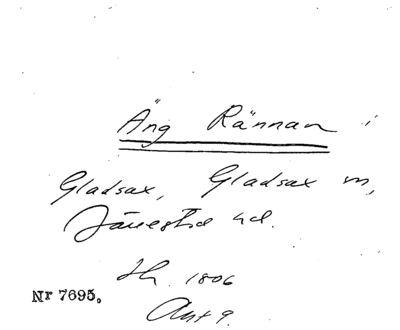 Äng Rännan i
Gladsax, Gladsax m,
Järrestad hd.
1806
Nr 7695.
Akt 9.